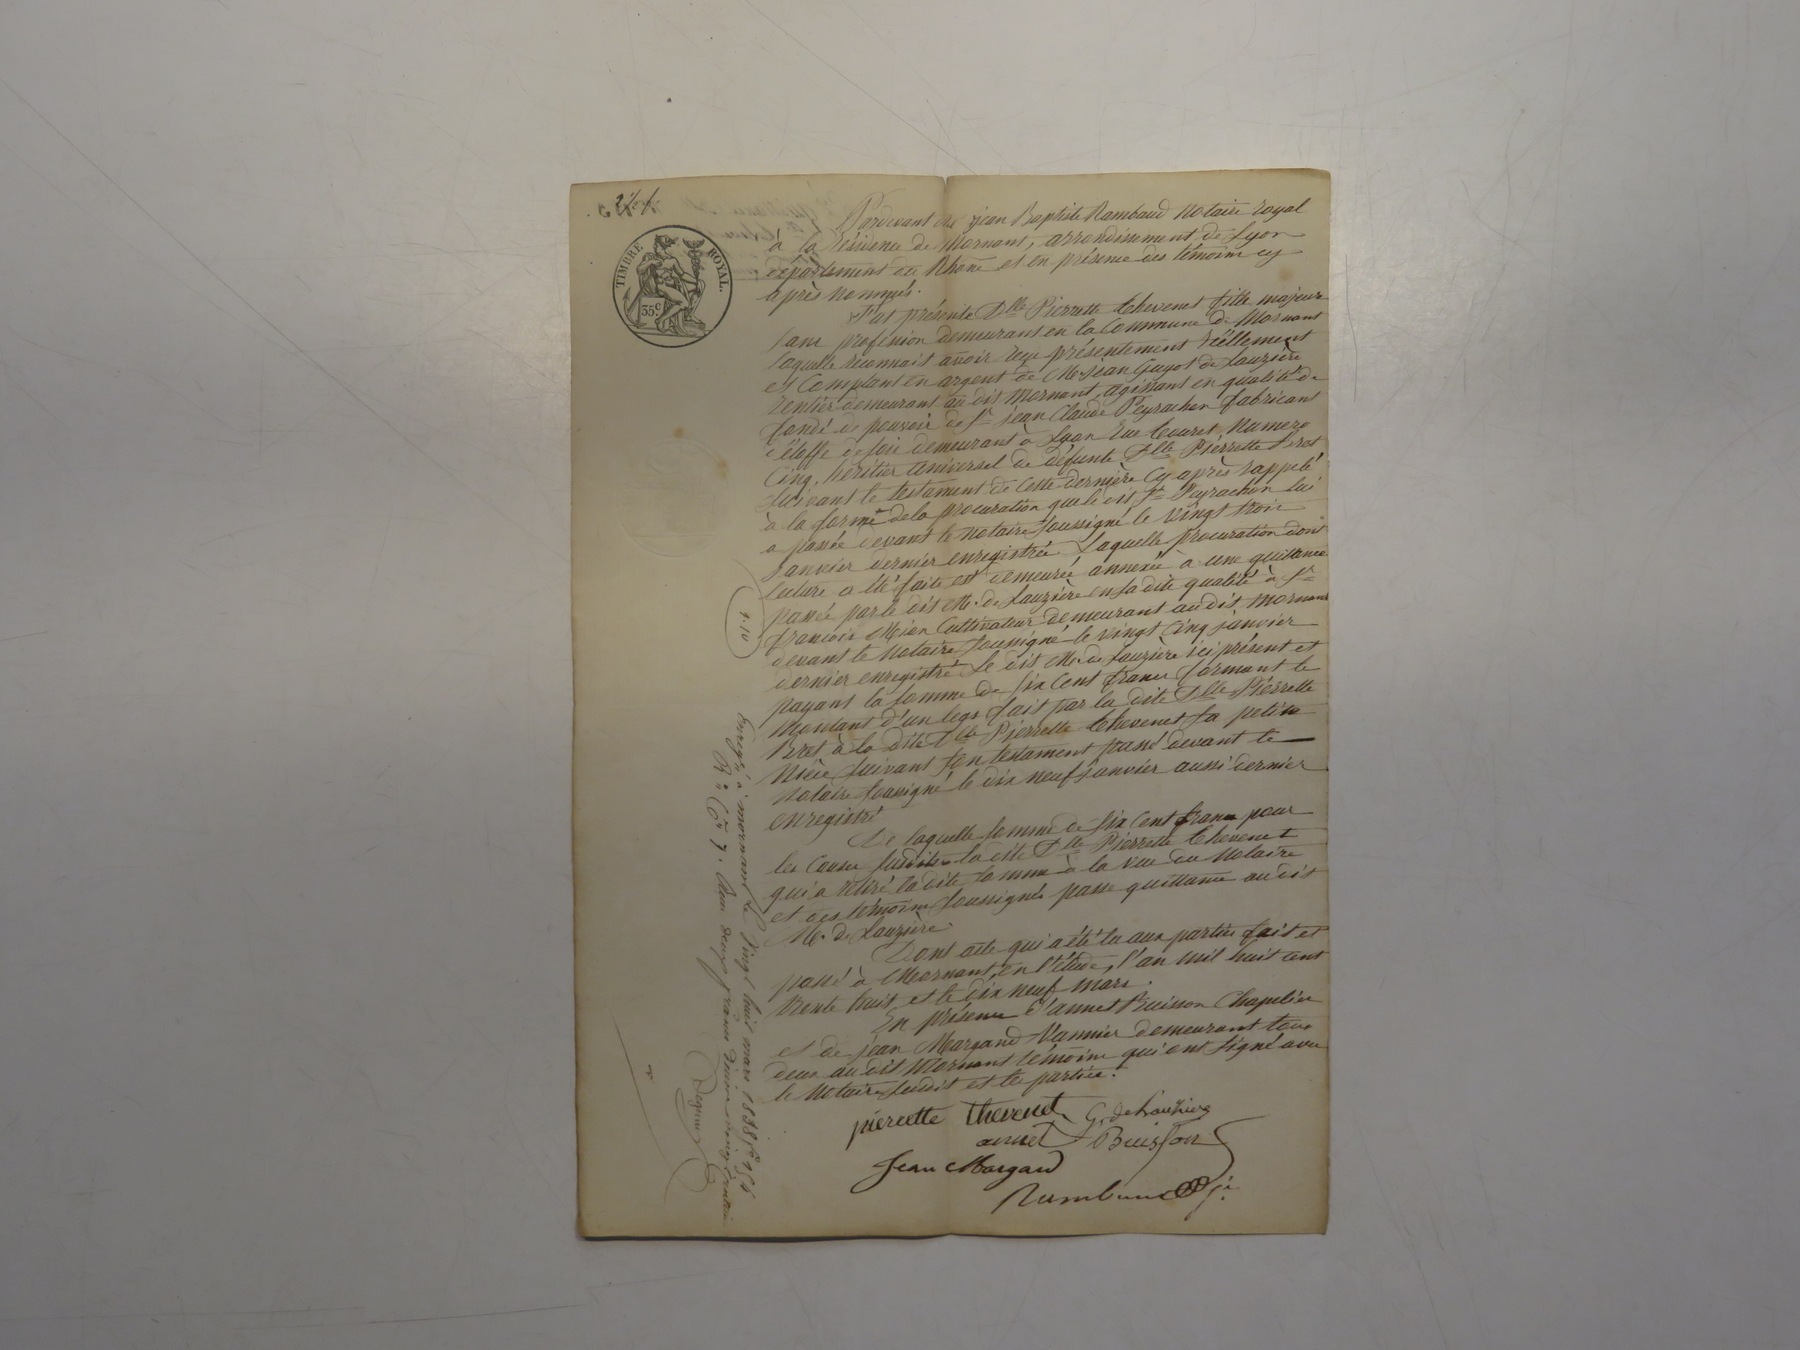 TIMBRE ROYAL.
35c
Pardevant Me jean Baptiste Rambaud Notaire royal
à la résidence de Mornant, arrondissement de Lyon
département du Rhône et en présence des témoins cy
après nommés.
Fut présente Dlle Pierrette Thevenet fille majeure
sans profession demeurant en la Commune de Mornant
laquelle reconnait avoir reçu présentement réellement
et Comptant en argent de Mr jean Guyot de Lauzière
rentier demeurant au dit Mornant, agissant en qualité de
fondé de pouvoir de Sr jean Claude Peyrachon fabricant
d'étoffe de soie demeurant à Lyon rue Numero
Cinq, héritier universel de défunte Dlle Pierrette Brot
suivant le testament de cette dernière cy après rappelé
à la forme de la procuration que le dit Sr Peyrachon lui
a passée devant le Notaire soussigné le vingt trois
janvier dernier enregistrée Laquelle procuration dont
lecture a été faite est demeurée annexée à une quittance
passée par le dit Mr. de Lauzière en sa dite qualité à Sr
francois Cultivateur demeurant au dit Mornant
devant le Notaire soussigné le vingt cinq janvier
dernier enregistré Le dit Mr. de Lauzière ici présent et
payant la somme de six cent francs formant le
montant d'un legs fait par la dite Dlle Pierrette
Brot à la dite Dlle Pierrette Thevenet sa petite
Nièce suivant son testament passé devant le
Notaire soussigné le dix neuf janvier aussi dernier
enregistré
De laquelle somme de six cent francs pour
les causes susdites la dite Dlle Pierrette Thevenet
qui a retiré la dite somme à la vue du Notaire
et des témoins soussignés passe quittance au dit
Mr. de Lauzière
Dont acte qui a été lu aux parties fait et
passé à Mornant, en l'étude, l'an mil huit cent
trente huit et le dix neuf mars.
En présence d'annet Buisson Chapelier
et de jean Margand Vannier demeurant tous
deux au dit Mornant témoins qui ont signé avec
le Notaire susdit et les parties.
pierrette thevenet G. de Lauzière
annet Buisson
Jean Margand
Rambaud
Enregé à mornant le vingt huit mars 1838 fo 151